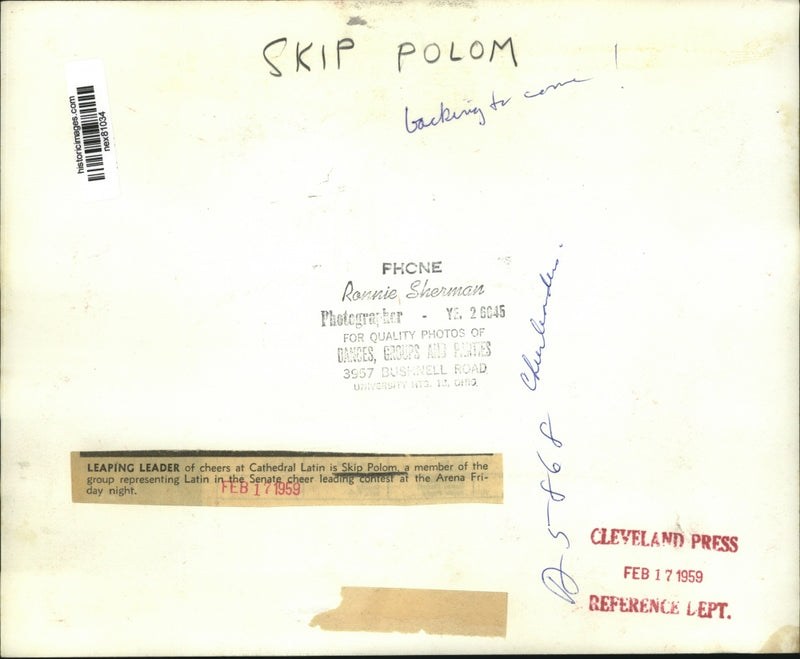 SKIP POLOM
backing to come!
historicimages.com
nex81034
PHONE
Ronnie Sherman
Photographer - YE. 2 6045
FOR QUALITY PHOTOS OF
DANCES, GROUPS AND PARTIES
3957 BUSHNELL ROAD
UNIVERSITY HTS. 18, OHIO
D-5868 Cheerleaders.
LEAPING LEADER of cheers at Cathedral Latin is Skip Polom, a member of the
group representing Latin in the Senate cheer leading contest at the Arena Fri-
day night.
FEB 17 1959
CLEVELAND PRESS
FEB 17 1959
REFERENCE DEPT.